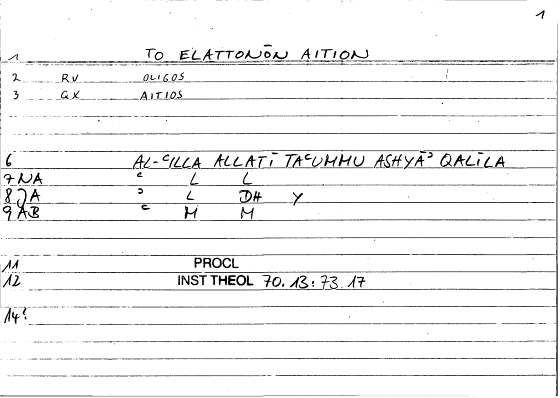 1
1 TO ELATTONŌN AITION
2 RV OLIGOS
3 GX AITIOS
6 AL-ᶜILLA ALLATĪ TAᶜUMMU ASHYĀʾ QALĪLA
7 NA ᶜ L L
8 JA ʾ L DH Y
9 AB ᶜ M M
11 PROCL
12 INST THEOL 70.13:73.17
14?